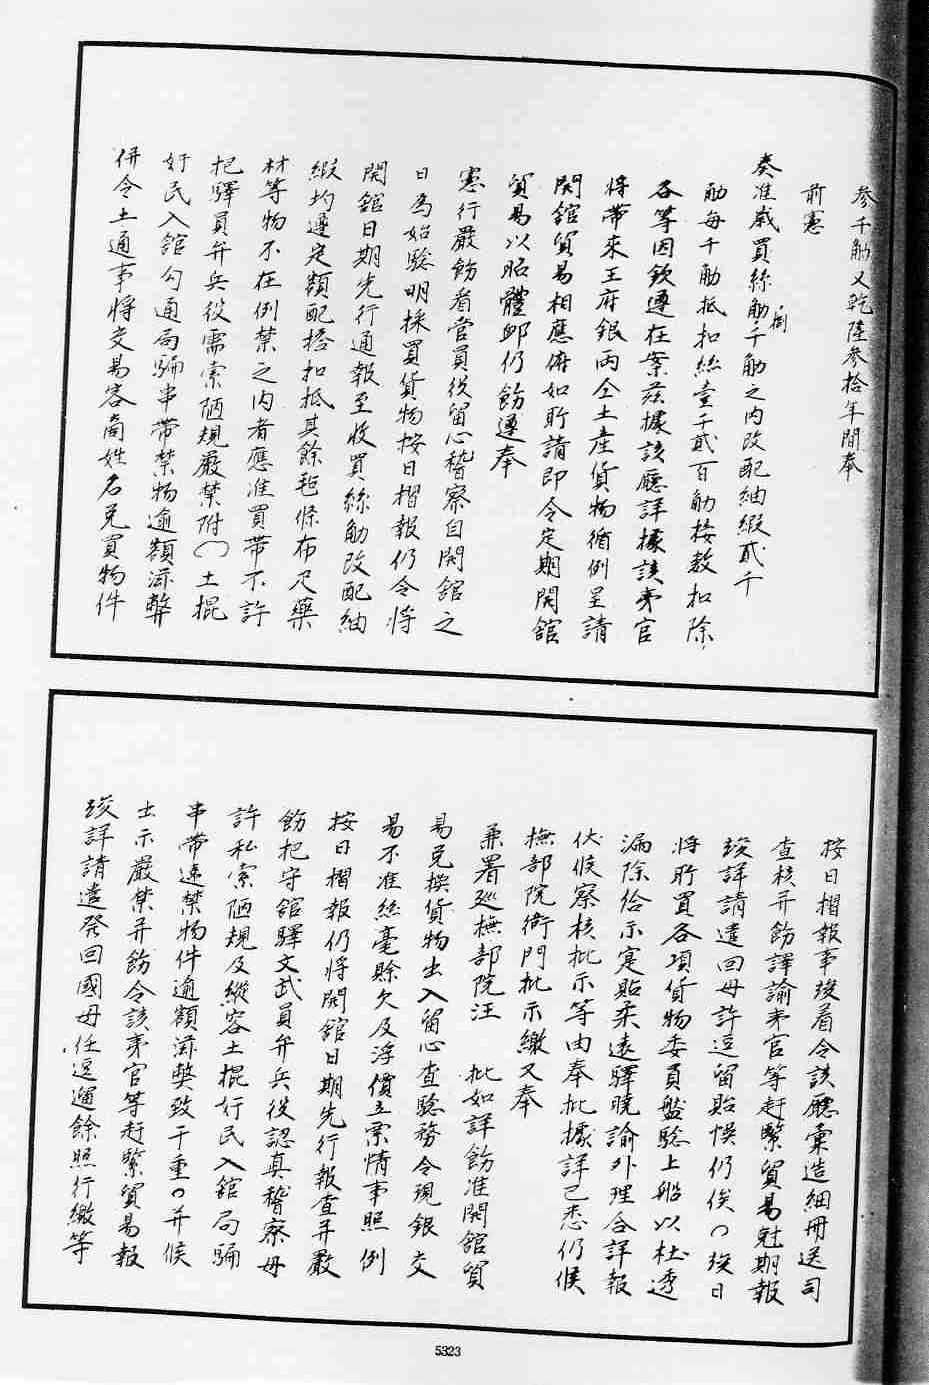 參千觔又乾陸參拾年間奉
前憲
奏准歲買絲觔千觔之內改配紬緞貳千
捌
觔每千觔抵扣絲壹千貳百觔按數扣除
各等因欽遵在案茲據該廳詳據該夷官
將帶來王府銀兩仝土產貨物循例呈請
開舘貿易相應俯如所請即令定期開舘
貿易以昭體卹仍飭遵奉
憲行嚴飭看管員役留心稽察自開舘之
日為始驗明採買貨物按日摺報仍令將
開舘日期先行通報至收買絲觔改配紬
緞均遵定額配搭扣抵其餘毡條布尺藥
材等物不在例禁之內者應准買帶不許
把驛員弁兵役需索陋規嚴禁附〇土棍
奸民入舘勾通局騙串帶禁物逾額滋弊
併令土通事將交易客商姓名兌買物件
按日摺報事竣着令該廳彙造細冊送司
查核并飭譯諭夷官等赶緊貿易尅期報
竣詳請遣回毋許逗留貽悞仍俟〇竣日
將所買各項貨物委員盤騐上船以杜透
漏除給示寔貼柔遠驛曉諭外理合詳報
伏候察核批示等由奉批據詳已悉仍候
撫部院衙門批示繳又奉
兼署廵撫部院汪　批如詳飭准開舘貿
易兌換貨物出入留心查驗務令現銀交
易不准絲毫賒欠及浮價立索情事照例
按日摺報仍將開舘日期先行報查并嚴
飭把守舘驛文武員弁兵役認真稽察毋
許私索陋規及縱容土棍奸民入舘局騙
串帶違禁物件逾額滋獘致干重〇并候
出示嚴禁并飭令該夷官等赶緊貿易報
竣詳請遣發回國毋任逗遛餘照行繳等
5323